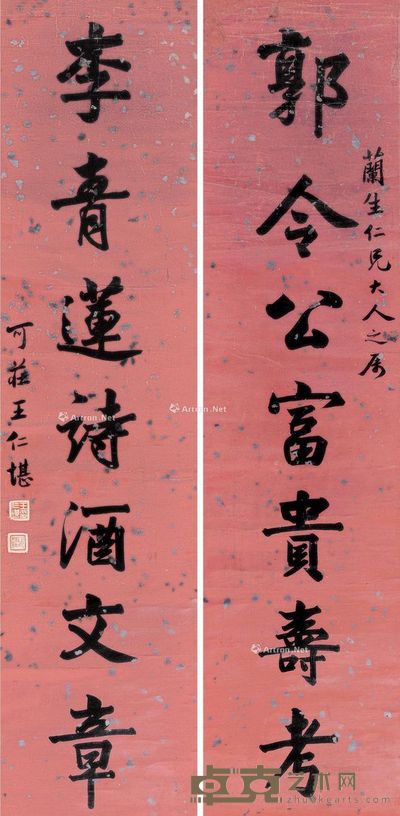 郭令公富貴壽考
蘭生仁兄大人之属
李青蓮詩酒文章
可莊王仁堪
Artron.Net
Artron.Net
Artron.Net
Artron.Net
卓克艺术网
zhuokearts.com